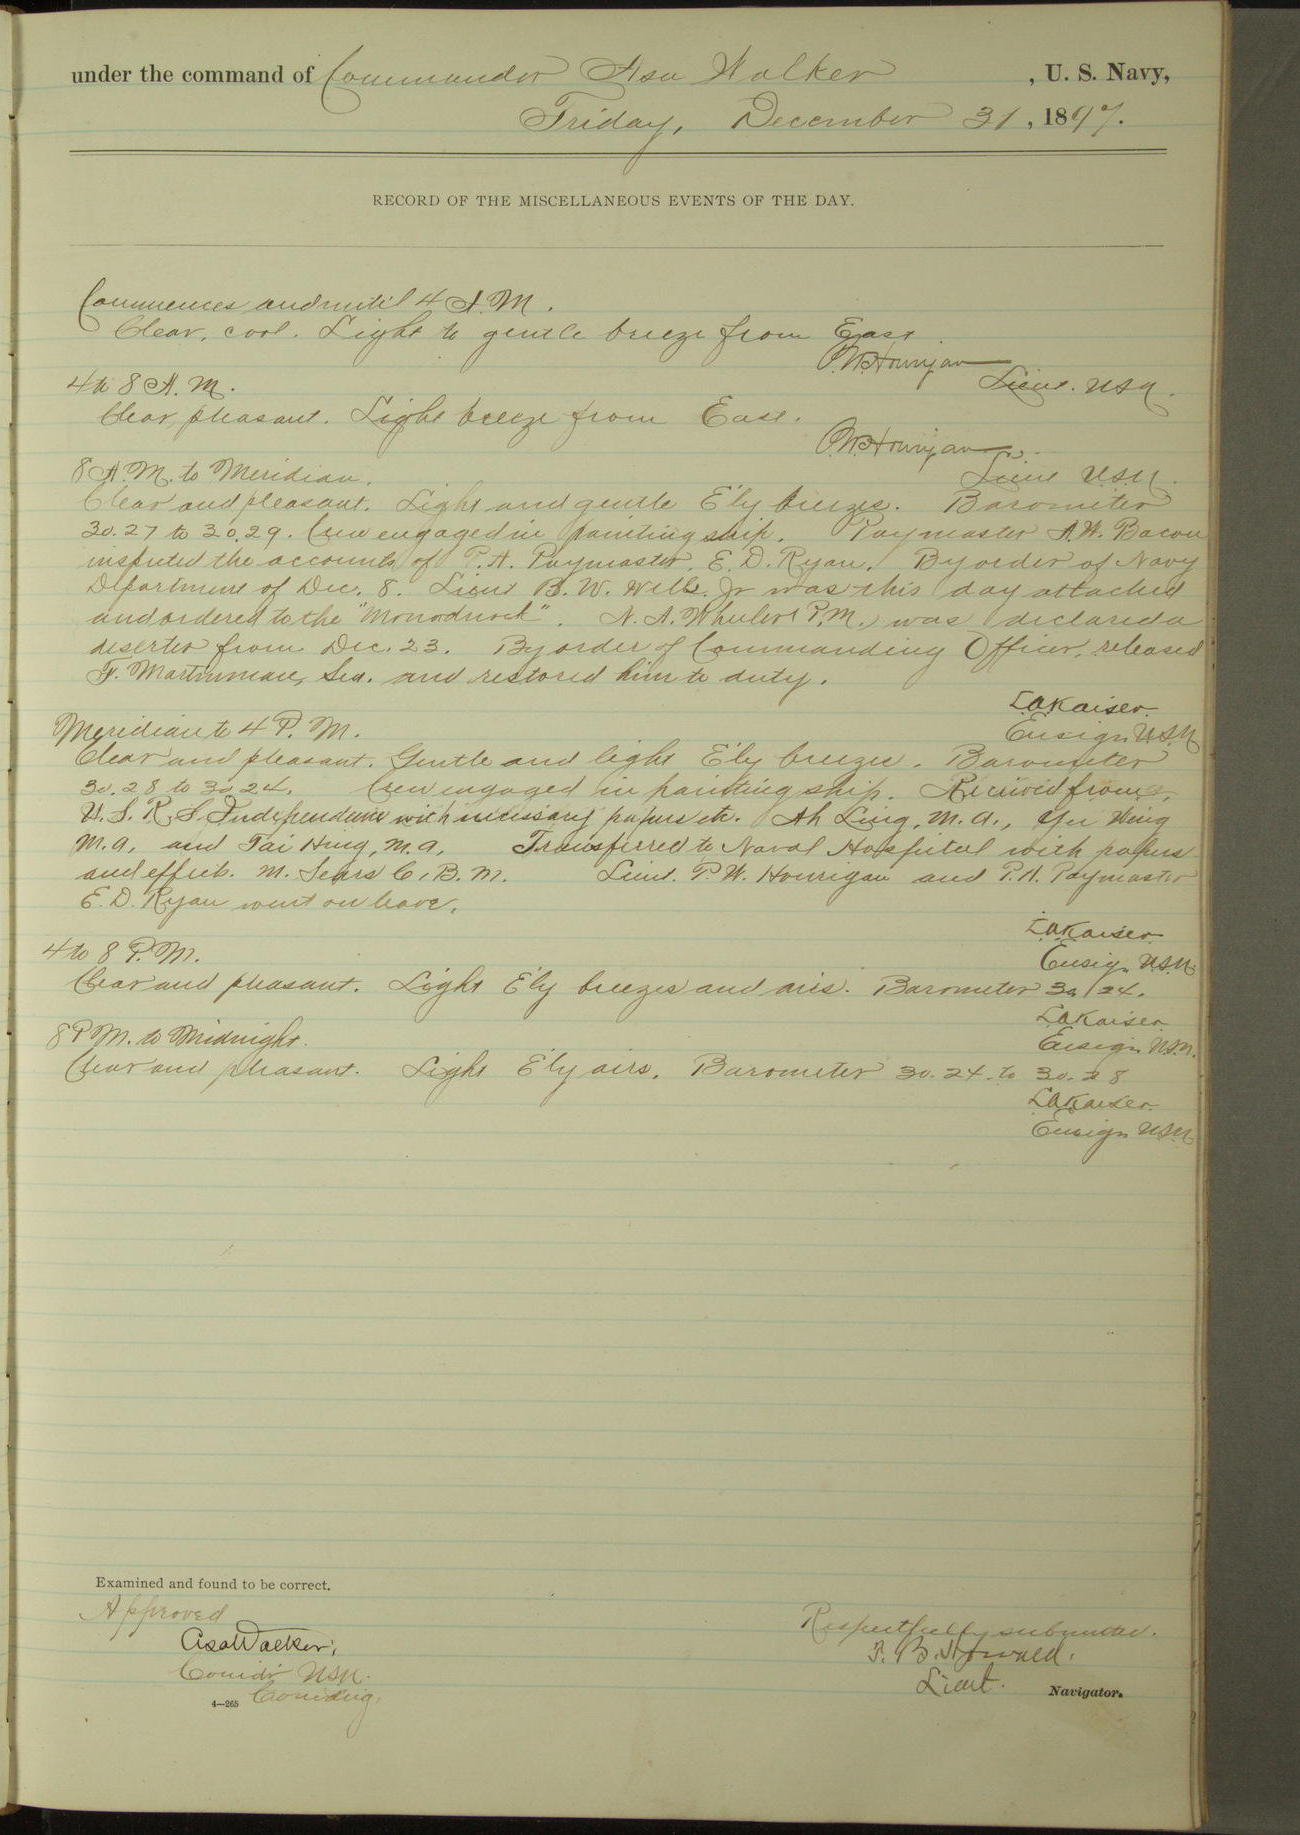 under the command of Commander Asa Walker , U. S. Navy,
Friday, December 31, 1897.
RECORD OF THE MISCELLANEOUS EVENTS OF THE DAY.
Commences and until 4 A.M.
Clear, cool. Light to gentle breeze from East.
P.W. Hourigan
Lieut. USN.
4 to 8 A.M.
Clear, pleasant. Light breeze from East.
P.W. Hourigan
Lieut USN.
8 A.M. to Meridian.
Clear and pleasant. Light and gentle E'ly breezes. Barometer
30.27 to 30.29. Crew engaged in painting ship. Paymaster A.W. Bacon
inspected the accounts of P.A. Paymaster. E. D. Ryan. By order of Navy
Department of Dec. 8. Lieut B. W. Wells. Jr was this day detached
and ordered to the "Monadnock". N. A. Wheeler (P.M.) was declared a
deserter from Dec. 23. By order of Commanding Officer, released
F. Sea. and restored him to duty.
L.A. Kaiser
Ensign U.S.N
Meridian to 4 P. M.
Clear and pleasant. Gentle and light E'ly breeze. Barometer
30.28 to 30.24. Crew engaged in painting ship. Received from
U.S.R.S. Independence with necessary papers etc. Ah Ling, M.A., Yee Wing
M.A. and Tai Hing, M.A. Transferred to Naval Hospital with papers
and effects. M. Sears C.B.M. Lieut. P.W. Hourigan and P.A. Paymaster
E. D. Ryan went on leave.
L.A. Kaiser
Ensign U.S.N.
4 to 8 P.M.
Clear and pleasant. Light E'ly breezes and airs. Barometer 30.24.
L.A. Kaiser
Ensign U.S.N.
8 P.M. to Midnight.
Clear and pleasant. Light E'ly airs. Barometer 30.24 to 30.28
L.A. Kaiser
Ensign USN
Examined and found to be correct.
Approved
Asa Walker,
Comdr USN.
Comdg.
4—265
Respectfully submitted.
Lieut. Navigator.